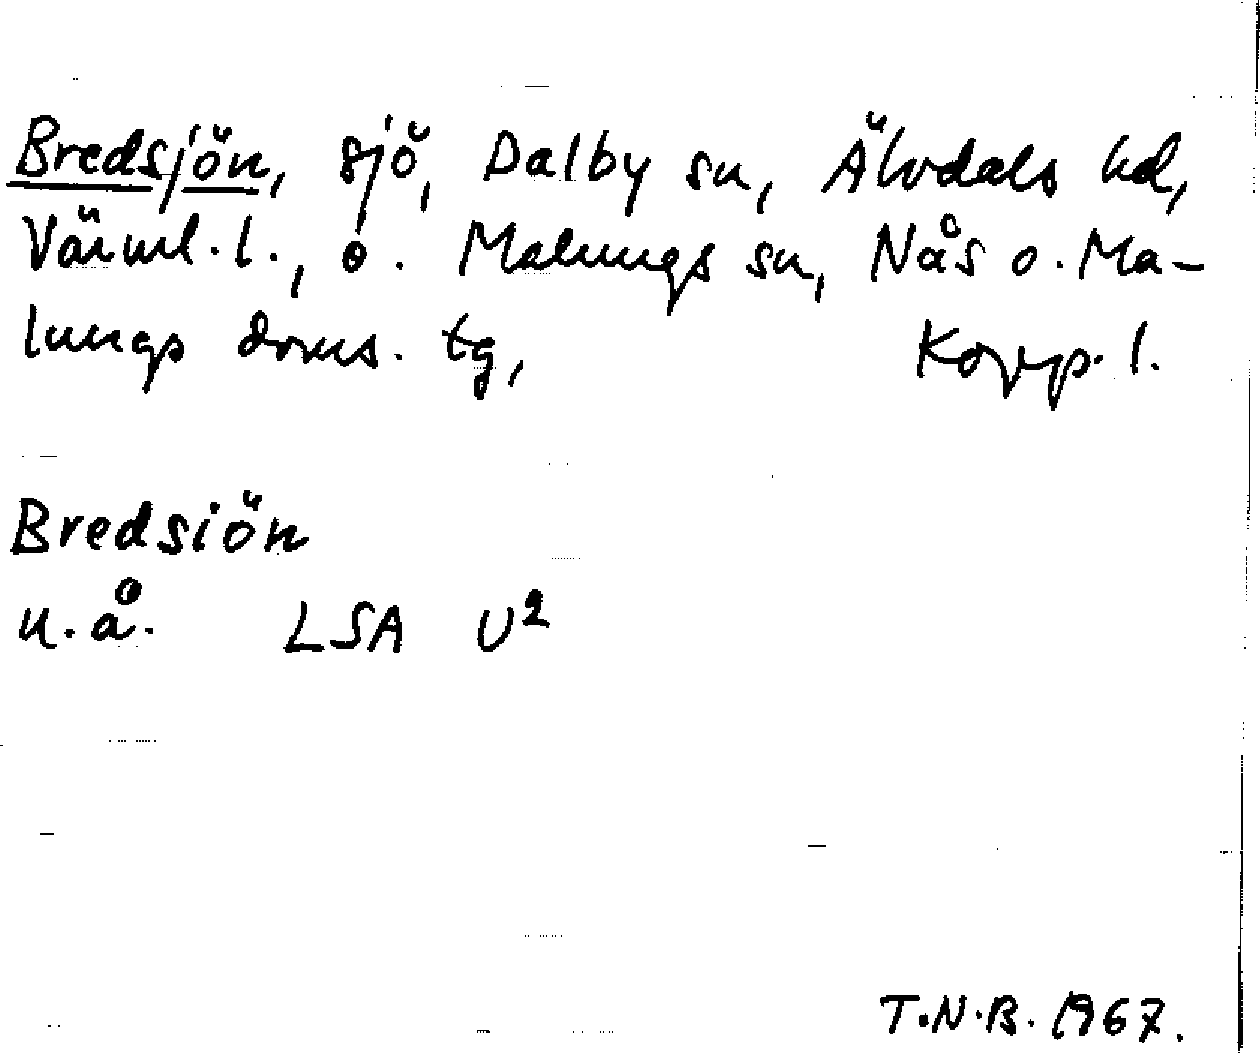 Bredsjön, sjö, Dalby sn, Älvdals hd,
Värml. l., o. Malungs sn, Nås o. Ma-
lungs doms. tg, Kopp. l.
Bredsiön
u. å. LSA U²
T.N.B. 1967.